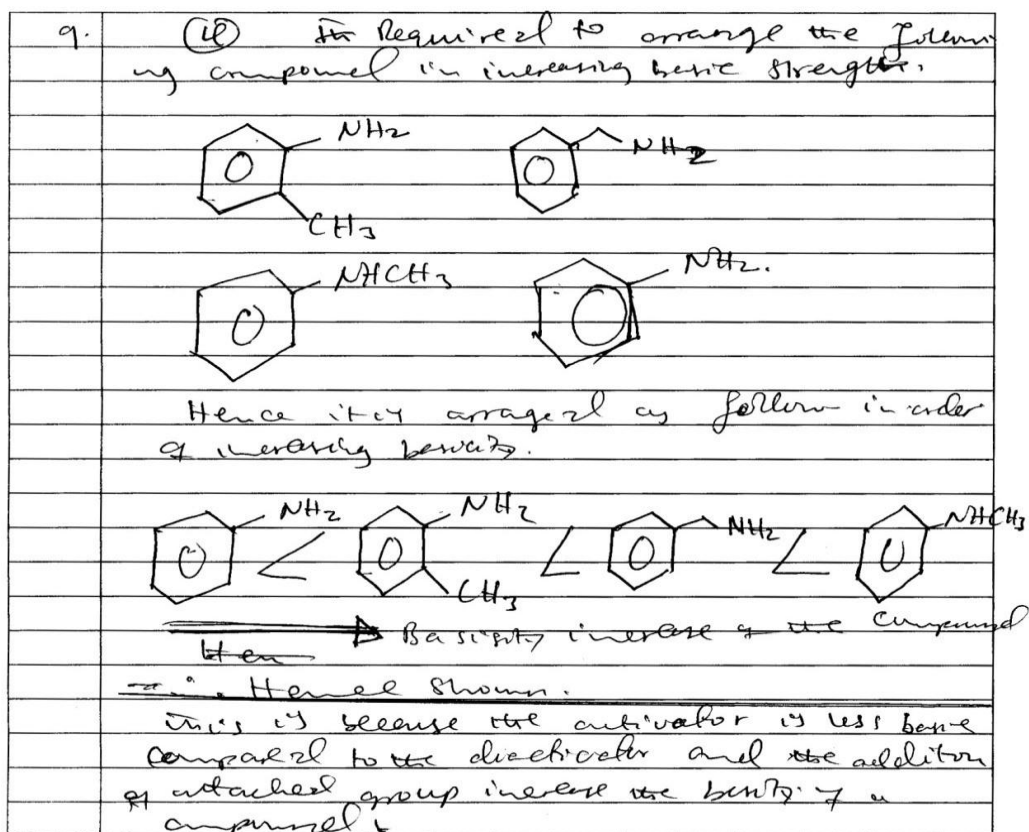 9. (ii) Required to arrange the follow
ing compound in increasing basic strength.
NH2
NH2
CH3
NHCH3
NH2.
Hence it is arraged as follow in order
of increasing basicity.
NH2 < NH2 < NH2 < NHCH3
CH3
Basisity increase of the compound
Hen
Hence shown.
This is because the activator is less basic
compared to the diactivator and the additon
of attached group increase the basity of a
compound.